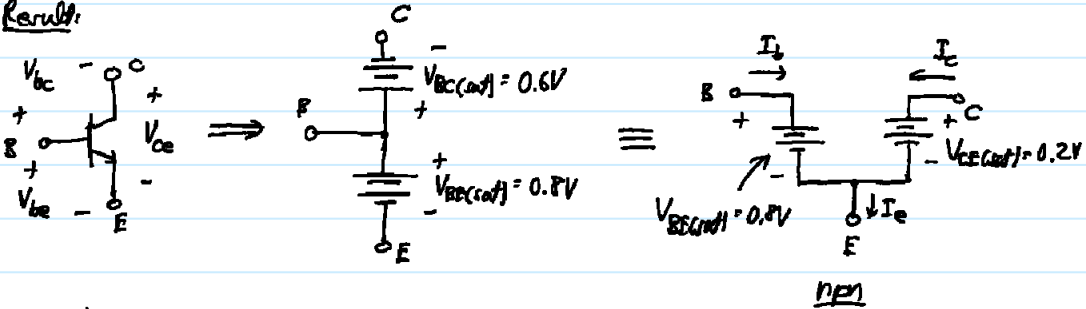 Result:
C
V_bc - C
+ +
B V_ce
+
V_be - -
E
⟹
B
-
V_BC(sat) = 0.6V
+
+
V_BE(sat) = 0.8V
-
E
≡
I_b I_c
B C
+ +
- - V_CE(sat) = 0.2V
V_BE(sat) = 0.8V
↓ I_e
E
npn